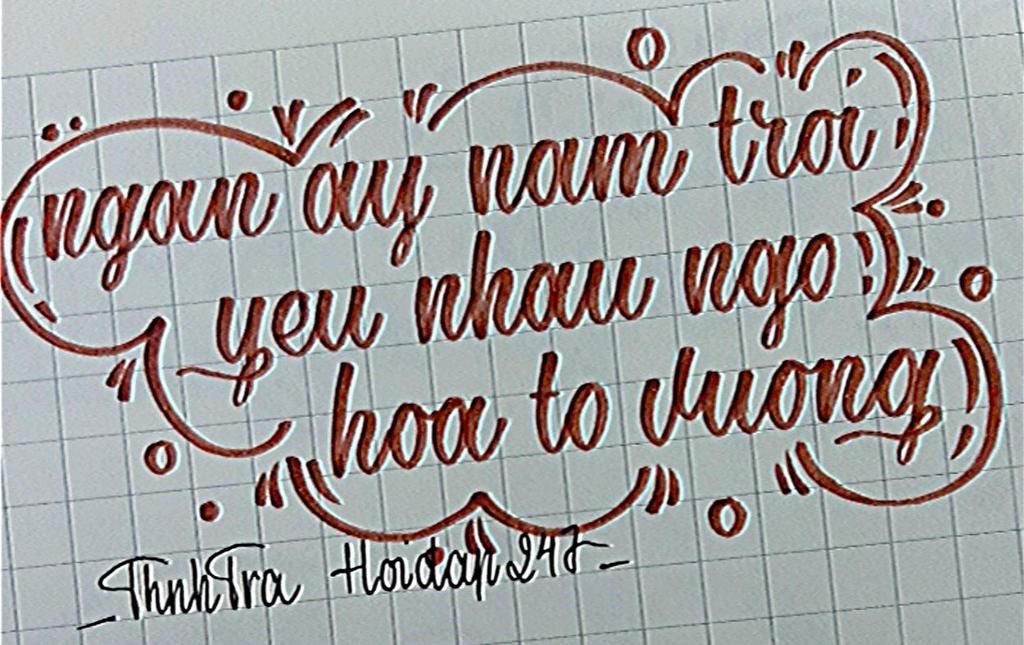 ngan ay nam troi
yeu nhau ngo
hoa to vuong
_ThnhTra Hoidap247_